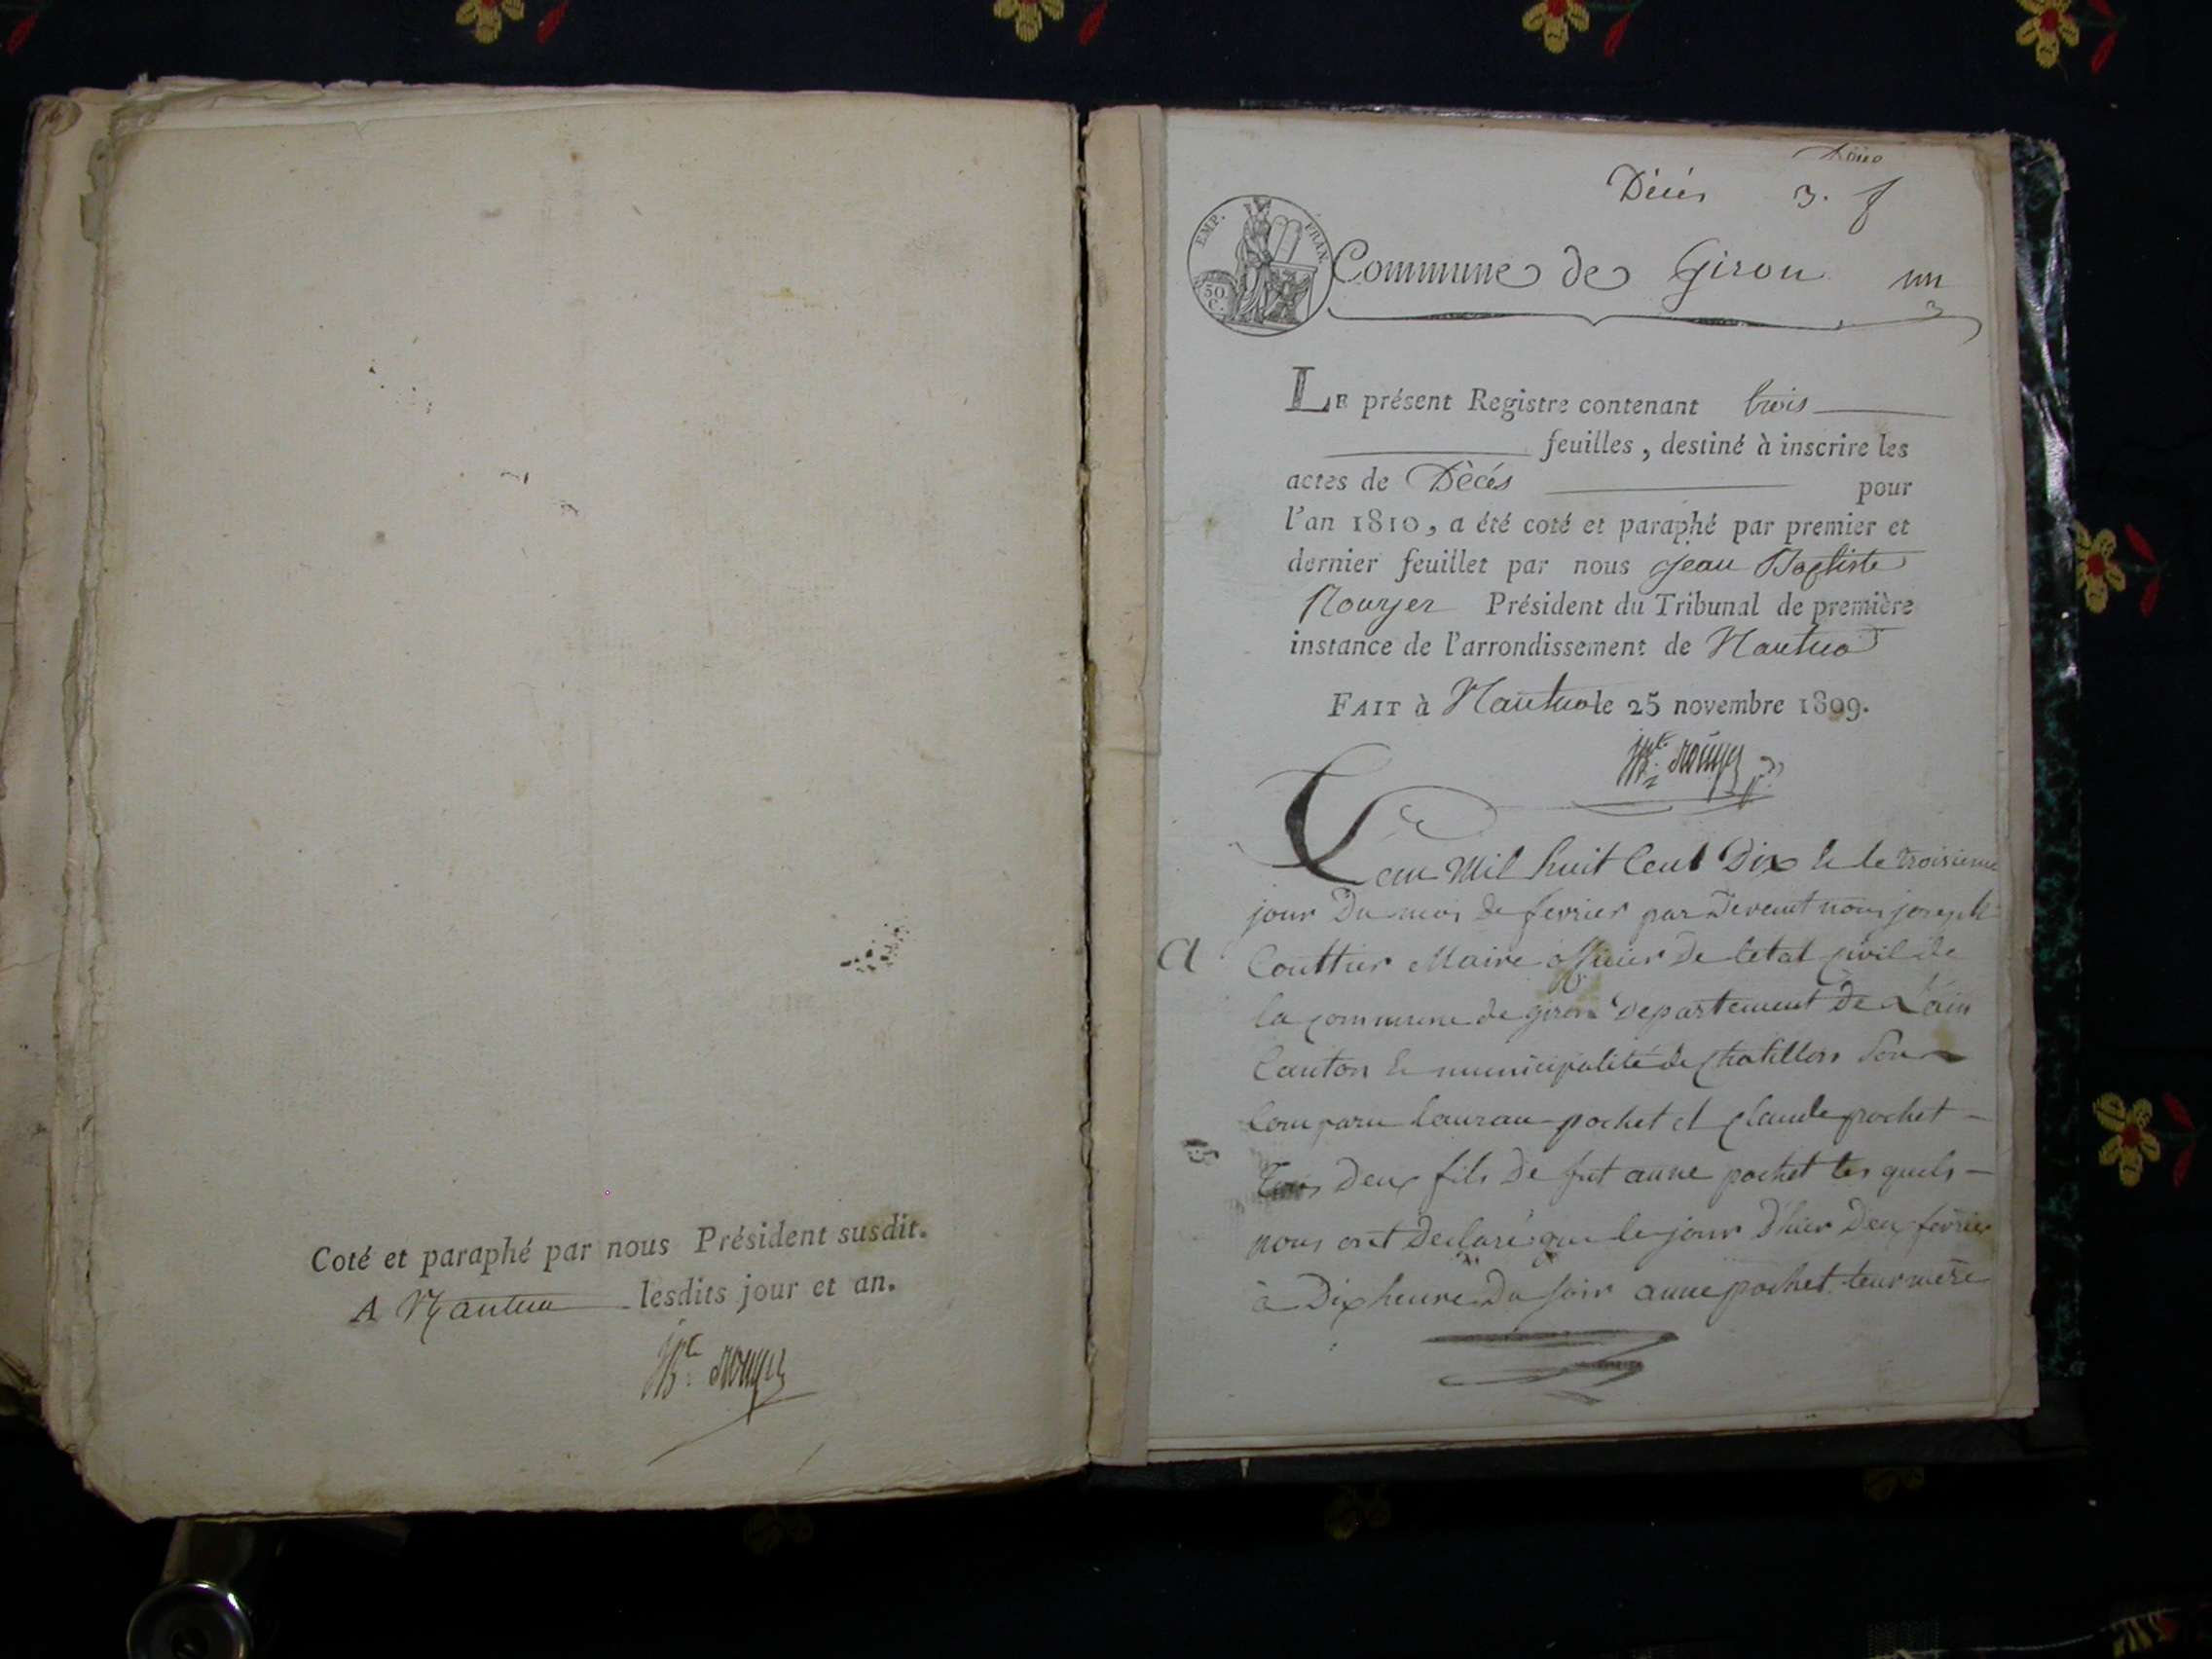 Coté et paraphé par nous Président susdit.
A Nantua lesdits jour et an.
JBte Rouyer
Décés 3. f
EMP. FRAN.
50 C.
Commune de Giron un
Le présent Registre contenant trois
feuilles, destiné à inscrire les
actes de Dècés pour
l'an 1810, a été coté et paraphé par premier et
dernier feuillet par nous Jean Baptiste
Rouyer Président du Tribunal de première
instance de l'arrondissement de Nantua
FAIT à Nantua le 25 novembre 1809.
JBte Rouyer
Lan Mil huit Cent Dix & le troisieme
jour Du mois de fevrier par Devant nous joseph
a Couttier Maire officier De letat civil de
la commune de giron Departement De Lain
Canton & municipalité de Chatillon Son
Comparu pochet et Claude pochet
tous Deux fils De fut anne pochet les quels
nous ont Declaré que le jour D'hier Deux fevrier
à Dix heure Du soir anne pochet leur mère